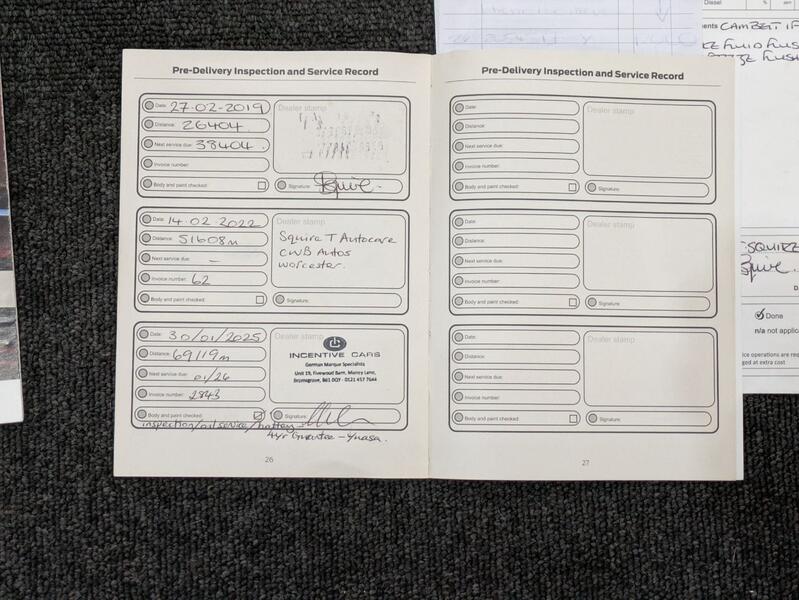 Pre-Delivery Inspection and Service Record
Date: 27-02-2019
Distance: 26404
Next service due: 38404
Invoice number:
Body and paint checked:
Dealer stamp
Signature: Squire
Date: 14.02.2022
Distance: 51608m
Next service due: -
Invoice number: 62
Body and paint checked:
Dealer stamp
Squire T Autocare
CWB Autos
Worcester.
Signature:
Date: 30/01/2025
Distance: 69119m
Next service due: 01/26
Invoice number: 2843
Body and paint checked:
Dealer stamp
INCENTIVE CARS
German Marque Specialists
Unit 19, Fivewood Barn, Money Lane,
Bromsgrove, B61 0QY - 0121 457 7644
Signature:
inspection/oil service/battery
4yr Guarantee - Yuasa.
26
Pre-Delivery Inspection and Service Record
Date:
Distance:
Next service due:
Invoice number:
Body and paint checked:
Dealer stamp
Signature:
Date:
Distance:
Next service due:
Invoice number:
Body and paint checked:
Dealer stamp
Signature:
Date:
Distance:
Next service due:
Invoice number:
Body and paint checked:
Dealer stamp
Signature:
27
Diesel
CAMBELT
FLUID FLUSH
FLUSH
SQUIRE
Squire
Done
n/a not applic
ice operations are req
ged at extra cost